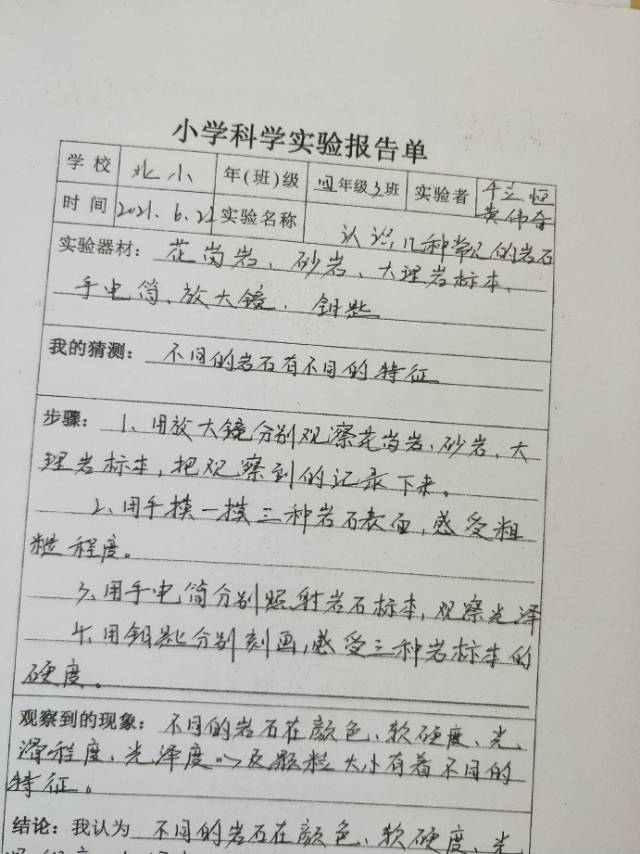 小学科学实验报告单
学校 北小 年(班)级 四年级3班 实验者 于立恒
黄伟奇
时间 2021.6.22 实验名称 认识几种常见的岩石
实验器材: 花岗岩、砂岩、大理岩标本、
手电筒、放大镜、钥匙
我的猜测: 不同的岩石有不同的特征
步骤: 1、用放大镜分别观察花岗岩、砂岩、大
理岩标本,把观察到的记录下来。
2、用手摸一摸三种岩石表面,感受粗
糙程度。
3、用手电筒分别照射岩石标本,观察光泽
4、用钥匙分别刻画,感受三种岩标本的
硬度。
观察到的现象: 不同的岩石在颜色、软硬度、光
滑程度、光泽度以及颗粒大小有着不同的
特征。
结论: 我认为 不同的岩石在颜色、软硬度、光